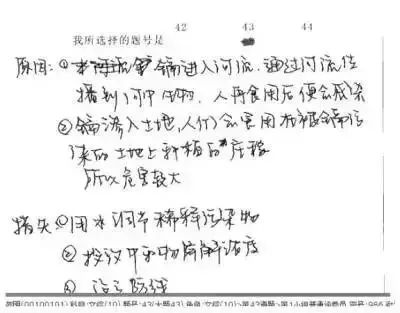 42 43 44
我所选择的题号是
原因:①镉进入河流.通过河流传
播到河中生物.人再食用后便会感染
②镉渗入土地,人们会食用在被镉污
染的土地上种植的庄稼
所以危害较大
措失①用水调节稀释污染物
②投放中和物降解浓度
③